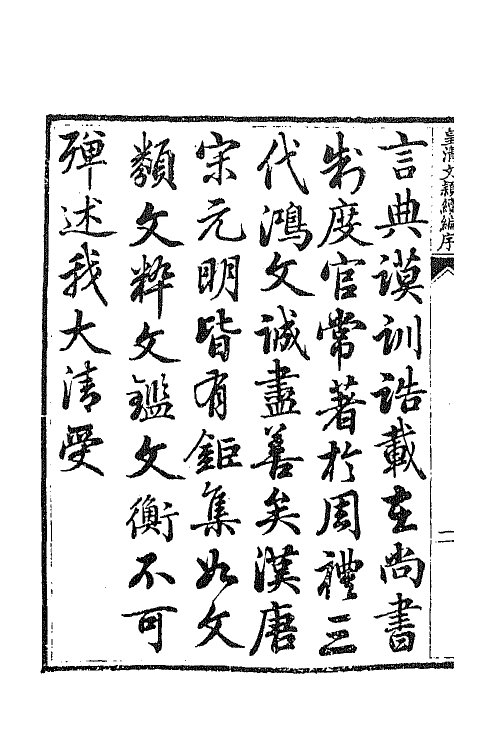 皇清文穎續編序
二
言典謨訓誥載在尚書
制度官常著於周禮三
代鴻文誠盡善矣漢唐
宋元明皆有鉅集如文
類文粹文鑑文衡不可
殫述我大清受